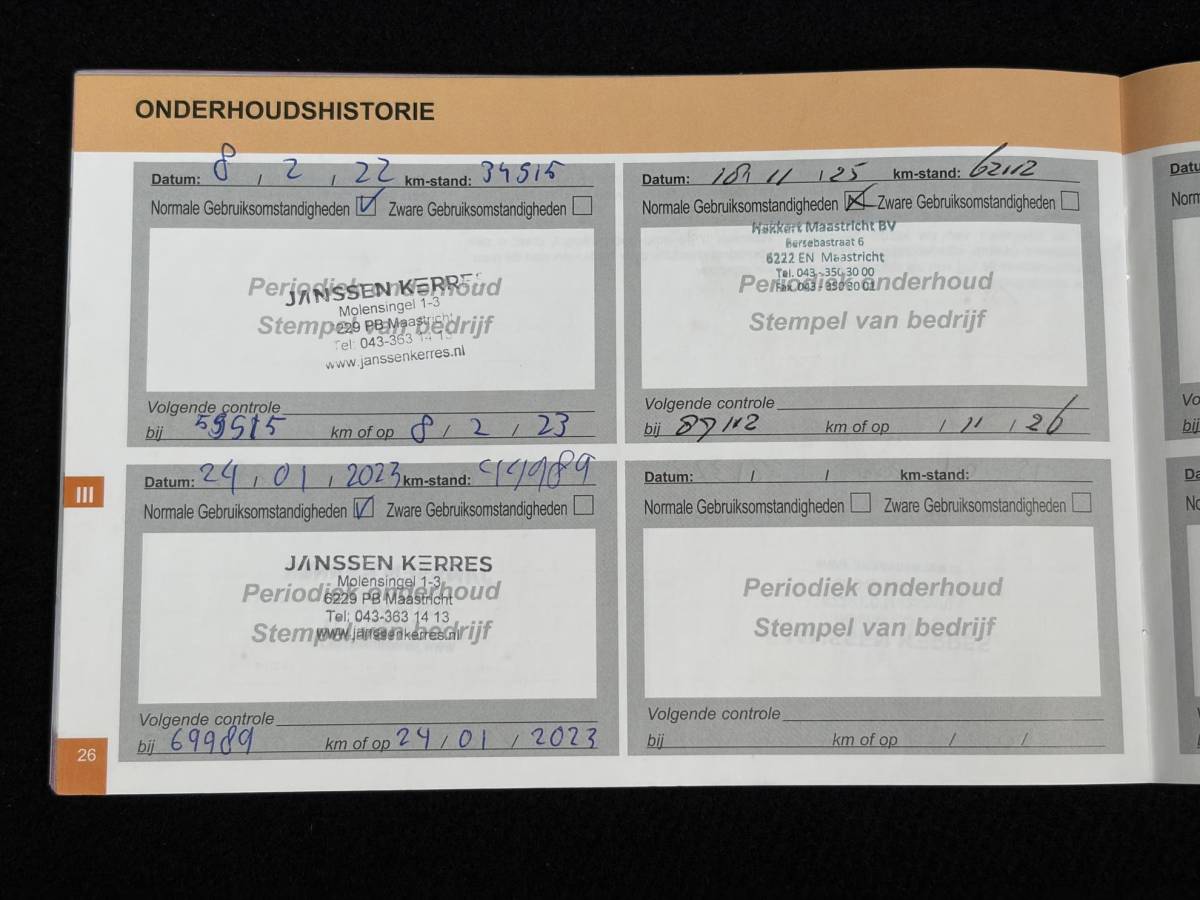 ONDERHOUDSHISTORIE
Datum: 8 / 2 / 22 km-stand: 34515
Normale Gebruiksomstandigheden Zware Gebruiksomstandigheden
Periodiek onderhoud
Stempel van bedrijf
JANSSEN KERRES
Molensingel 1-3
6229 PB Maastricht
Tel: 043-363 14 13
www.janssenkerres.nl
Volgende controle
bij 59515 km of op 8 / 2 / 23
Datum: 11 / 25 km-stand: 62112
Normale Gebruiksomstandigheden Zware Gebruiksomstandigheden
Hekkert Maastricht BV
Bersebastraat 6
6222 EN Maastricht
Tel. 043 - 350 30 00
Fax. 043 - 350 30 01
Periodiek onderhoud
Stempel van bedrijf
Volgende controle
bij 87112 km of op / 11 / 26
Datum: 24 / 01 / 2023 km-stand: 44989
Normale Gebruiksomstandigheden Zware Gebruiksomstandigheden
Periodiek onderhoud
Stempel van bedrijf
JANSSEN KERRES
Molensingel 1-3
6229 PB Maastricht
Tel: 043-363 14 13
www.janssenkerres.nl
Volgende controle
bij 69989 km of op 24 / 01 / 2023
Datum: / / km-stand:
Normale Gebruiksomstandigheden Zware Gebruiksomstandigheden
Periodiek onderhoud
Stempel van bedrijf
Volgende controle
bij km of op / /
III
26